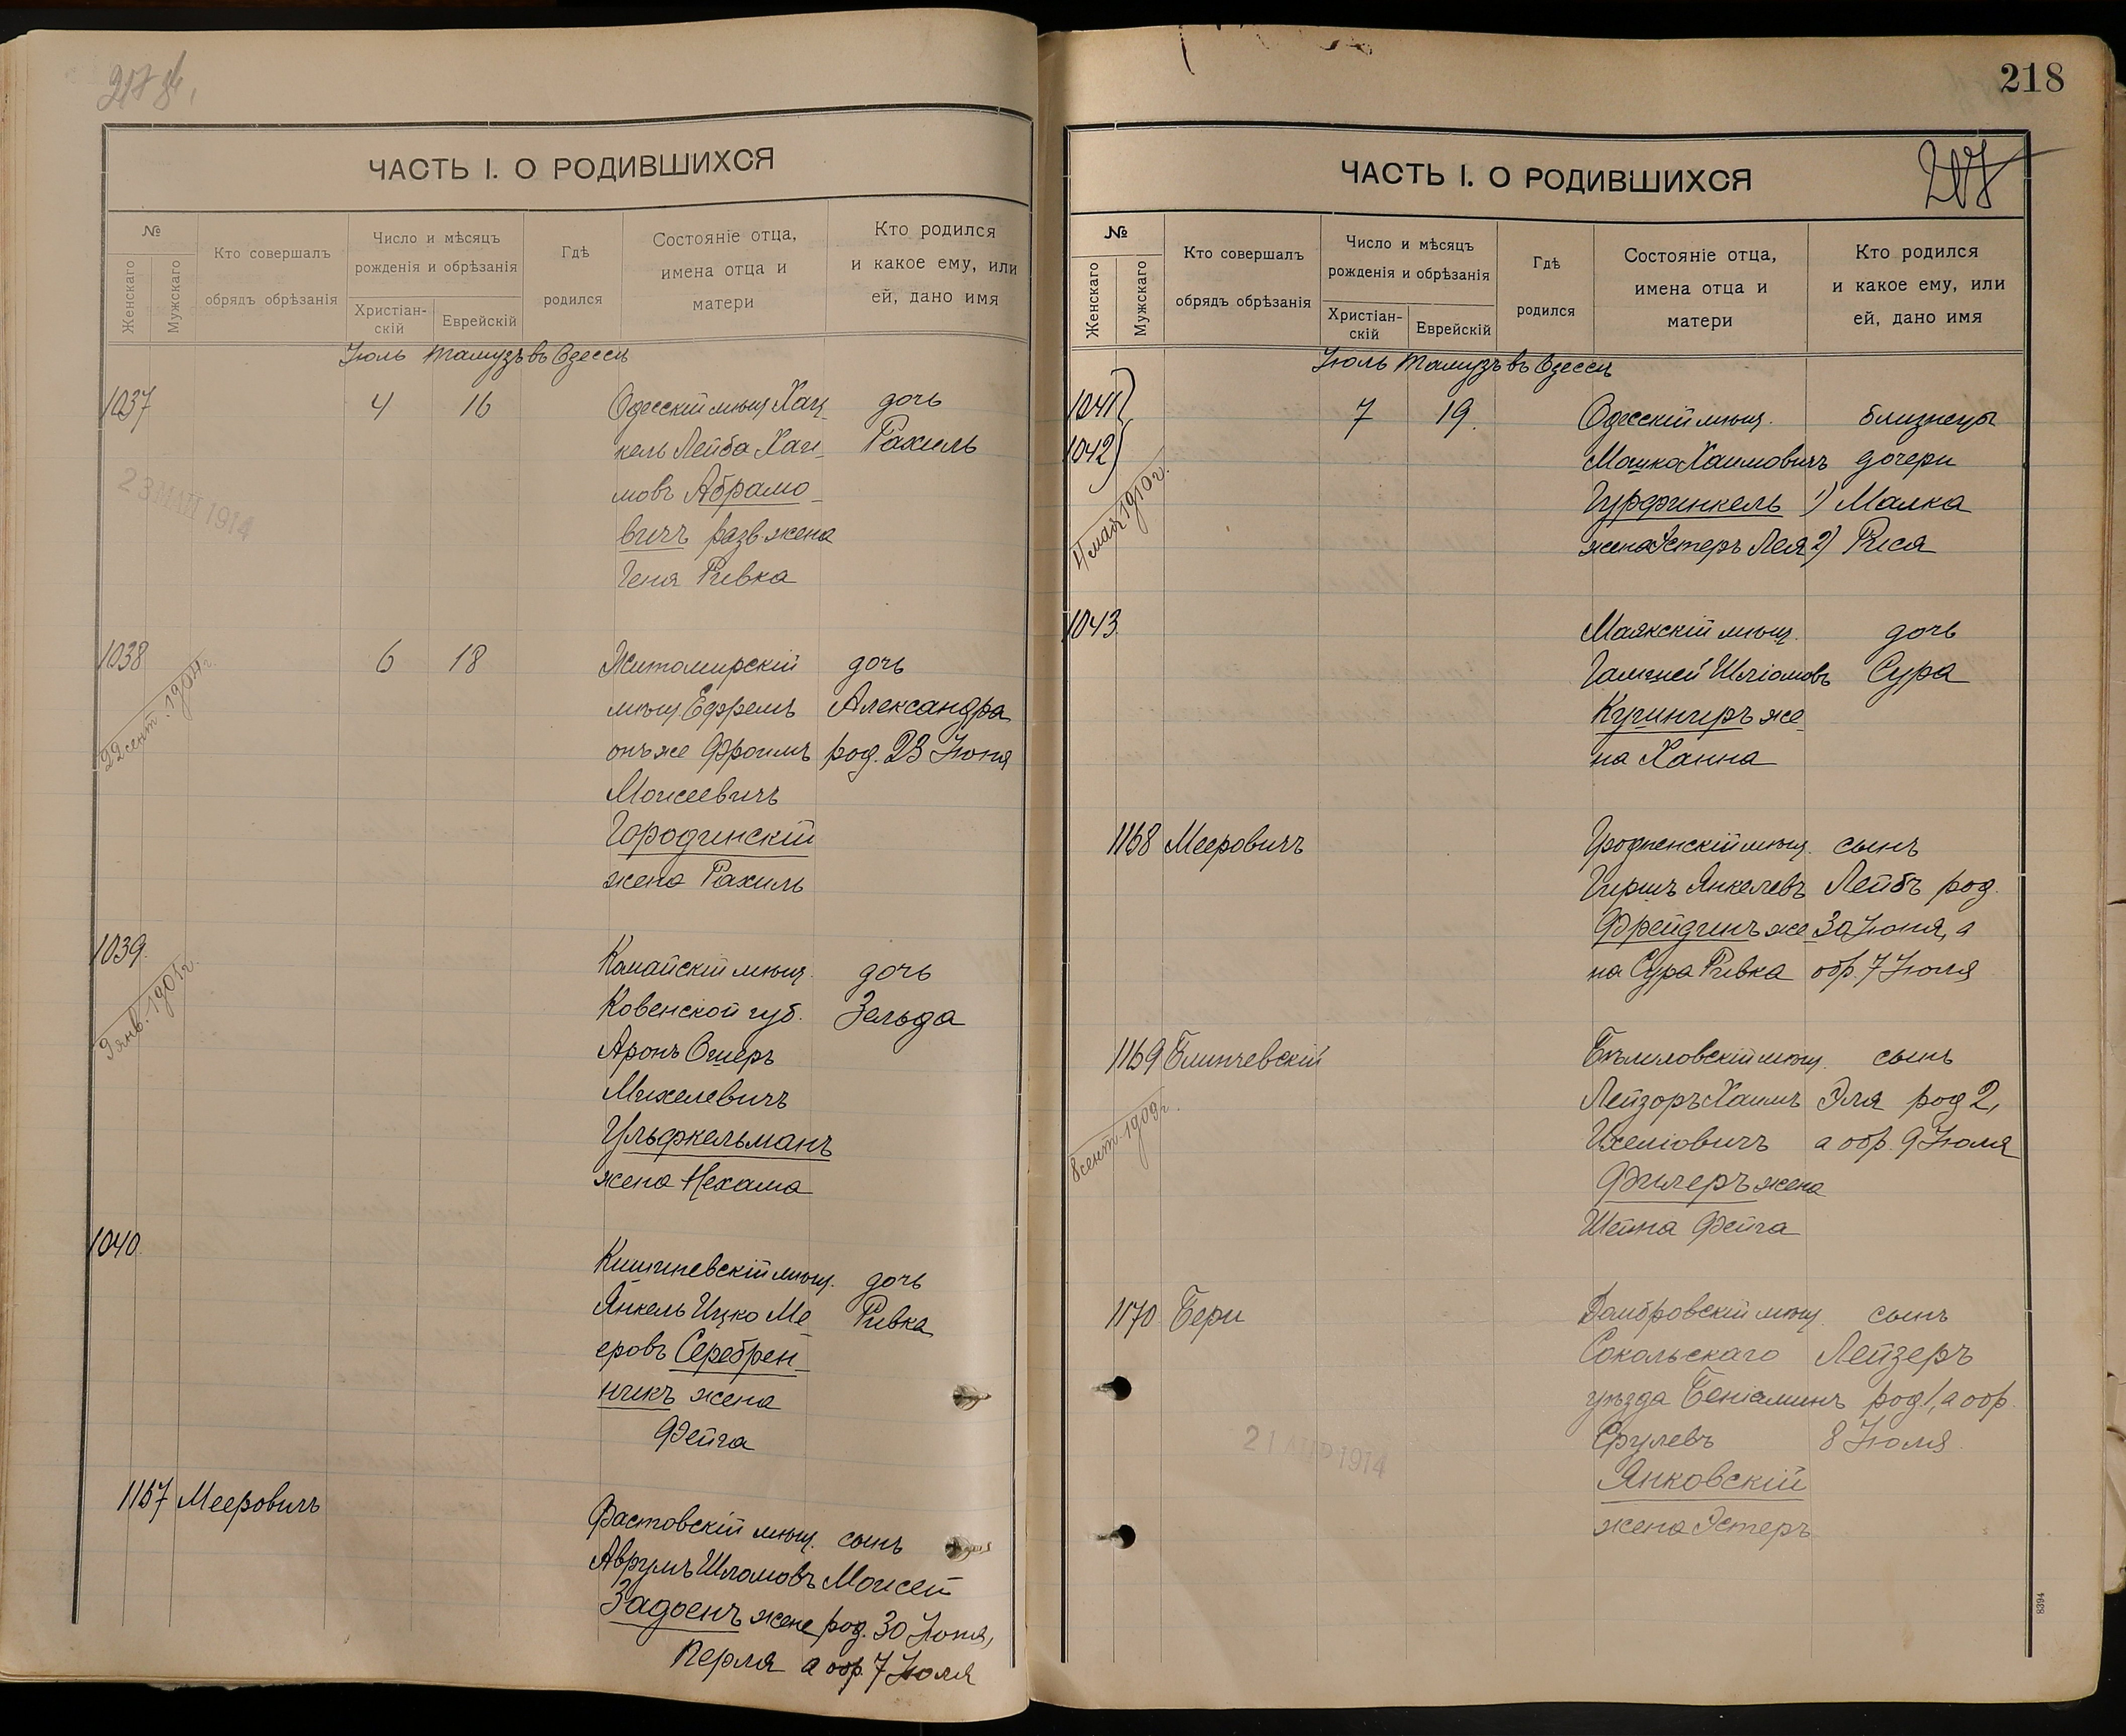 ЧАСТЬ I. О РОДИВШИХСЯ
№
Женскаго
Мужскаго
Кто совершалъ
обрядъ обрѣзанія
Число и мѣсяцъ
рожденія и обрѣзанія
Христіан-
скій
Еврейскій
Гдѣ
родился
Состояніе отца,
имена отца и
матери
Кто родился
и какое ему, или
ей, дано имя
Іюль Тамузъ въ Одессѣ
1037 4 16 Одесскій мѣщ Хац- дочь
кель Лейба Хаи- Рахиль
мовъ Абрамо-
вичъ разв жена
Геня Ривка
23 МАЙ 1914
1038 6 18 Житомирскій дочь
мѣщ Ефремъ Александра
онъ же Фроимъ род. 23 Іюня
Моисеевичъ
Городинскій
жена Рахиль
22 сент. 1904 г.
1039. мѣщ. дочь
Ковенской губ. Зельда
Аронъ Ошеръ
Михелевичъ
Ульфкельманъ
жена Нехама
9 янв.
1040 Кишиневскій мѣщ. дочь
Янкель Ицко Ме- Ривка
еровъ Серебрен-
никъ жена
Фейга
1167 Мееровичъ Фастовскій мѣщ. сынъ
Аврумъ Шломовъ Моисей
Задоенъ жена род. 30 Іюня,
Перля а обр. 7 Іюля
218
ЧАСТЬ I. О РОДИВШИХСЯ
№
Женскаго
Мужскаго
Кто совершалъ
обрядъ обрѣзанія
Число и мѣсяцъ
рожденія и обрѣзанія
Христіан-
скій
Еврейскій
Гдѣ
родился
Состояніе отца,
имена отца и
матери
Кто родился
и какое ему, или
ей, дано имя
Іюль Тамузъ въ Одессѣ
1041 7 19. Одесскій мѣщ. близнецы
1042 Мошко Хаимовичъ дочери
Гурфинкель 1) Малка
жена Эстеръ Лея 2) Рися
мая 1910 г.
1043 Маякскій мѣщ. дочь
Шліомовъ Сура
Кушниръ же-
на Ханна
1168 Мееровичъ Гродненскій мѣщ. сынъ
Гиршъ Янкелевъ Лейбъ род.
Фрейдинъ же- 30 Іюня, а
на Сура Ривка обр. 7 Іюля
1169 Блинчевскій Бѣлиловскій мѣщ. сынъ
Лейзоръ Хаимъ Эля род 2,
а обр. 9 Іюля
Филеръ жена
Шейна Фейга
8 сент. 1909 г.
1170 Бери Домбровскій мѣщ. сынъ
Сокольскаго Лейзеръ
уѣзда Беніаминъ род 1, а обр.
Срулевъ 8 Іюля
Янковскій
жена Эстеръ
21 АПР 1914
8394